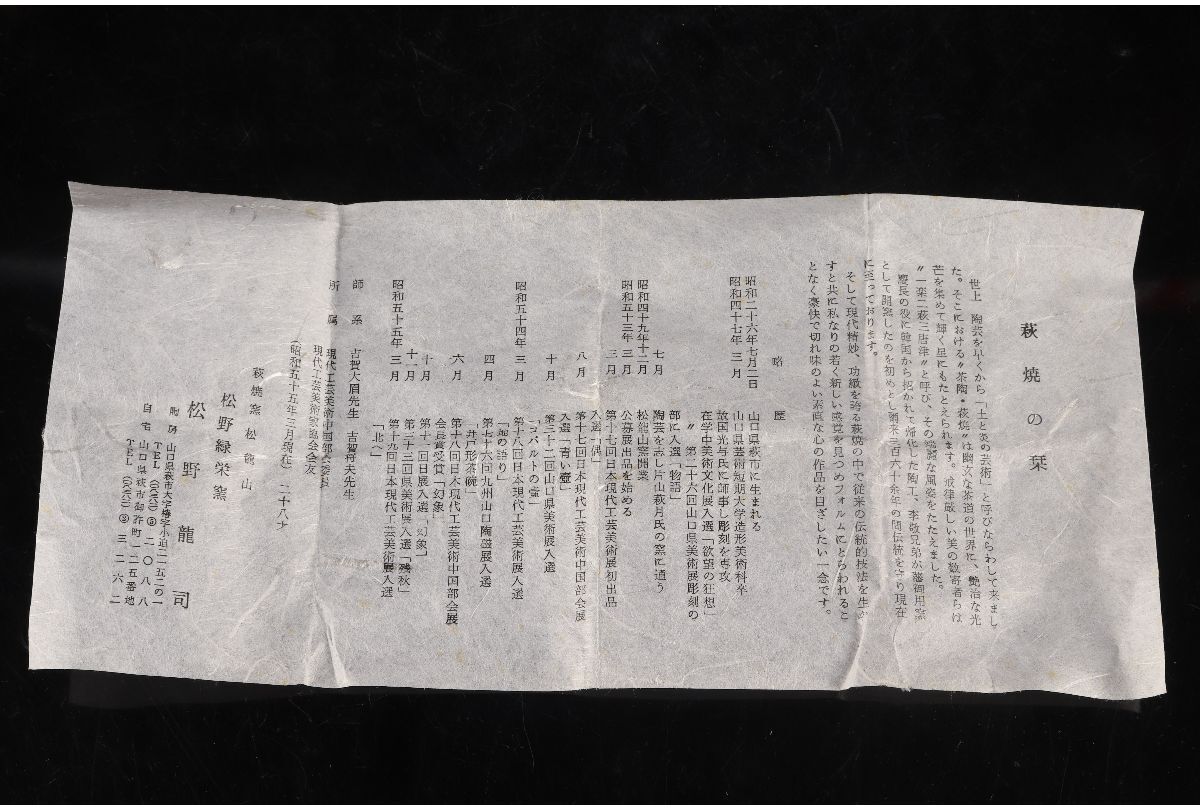 萩焼の栞
世上 陶芸を早くから「土と炎の芸術」と呼びならわして来まし
た。そこにおける〝茶陶・萩焼〟は幽玄な茶道の世界に、艶冶な光
芒を集めて輝く星にもたとえられます。戒律厳しい美の数寄者らは
〝一楽二萩三唐津〟と呼び、その端麗な風姿をたたえました。
慶長の役に韓国から招かれて帰化した陶工、李敬兄弟が藩御用窯
として開窯したのを初めとし爾来三百六十余年の間伝統を守り現在
に至っております。
そして現代精妙、功緻を誇る萩焼の中で従来の伝統的技法を生か
すと共に私なりの若く新しい感覚を見つめフォルムにとらわれるこ
となく豪快で切れ味のよい素直な心の作品を目ざしたい一念です。
略歴
昭和二十六年七月二日 山口県萩市に生まれる
昭和四十七年 三月 山口県芸術短期大学造形美術科卒
故国光与氏に師事し彫刻を専攻
在学中美術文化展入選「欲望の狂想」
〃 第二十六回山口県美術展彫刻の
部に入選「物語」
七月 陶芸を志し片山萩月氏の窯に通う
昭和四十九年十二月 松龍山窯開業
昭和五十三年 三月 公募展出品を始める
三月 第十七回日本現代工芸美術展初出品
入選「偶」
八月 第十七回日本現代工芸美術中国部会展
入選「青い壷」
十月 第三十二回山口県美術展入選
「コバルトの壷」
昭和五十四年 三月 第十八回日本現代工芸美術展入選
「の語り」
四月 第七十六回九州山口陶磁展入選
「井戸形茶碗」
六月 第十八回日本現代工芸美術中国部会展
会長賞受賞「幻象」
十月 第十一回日展入選「幻象」
十一月 第三十三回県美術展入選「残秋」
昭和五十五年 三月 第十九回日本現代工芸美術展入選
「北へ」
師系 古賀大眉先生 吉賀将夫先生
所属 現代工芸美術中国部会委員
現代工芸美術家協会会友
(昭和五十五年三月現在) 二十八才
萩焼窯 松龍山
松野緑栄窯
松野龍司
陶房 山口県萩市大字椿字小迫二二五二の一
TEL 二〇八八
自宅 山口県萩市御許町一二五番地
TEL 三二六二